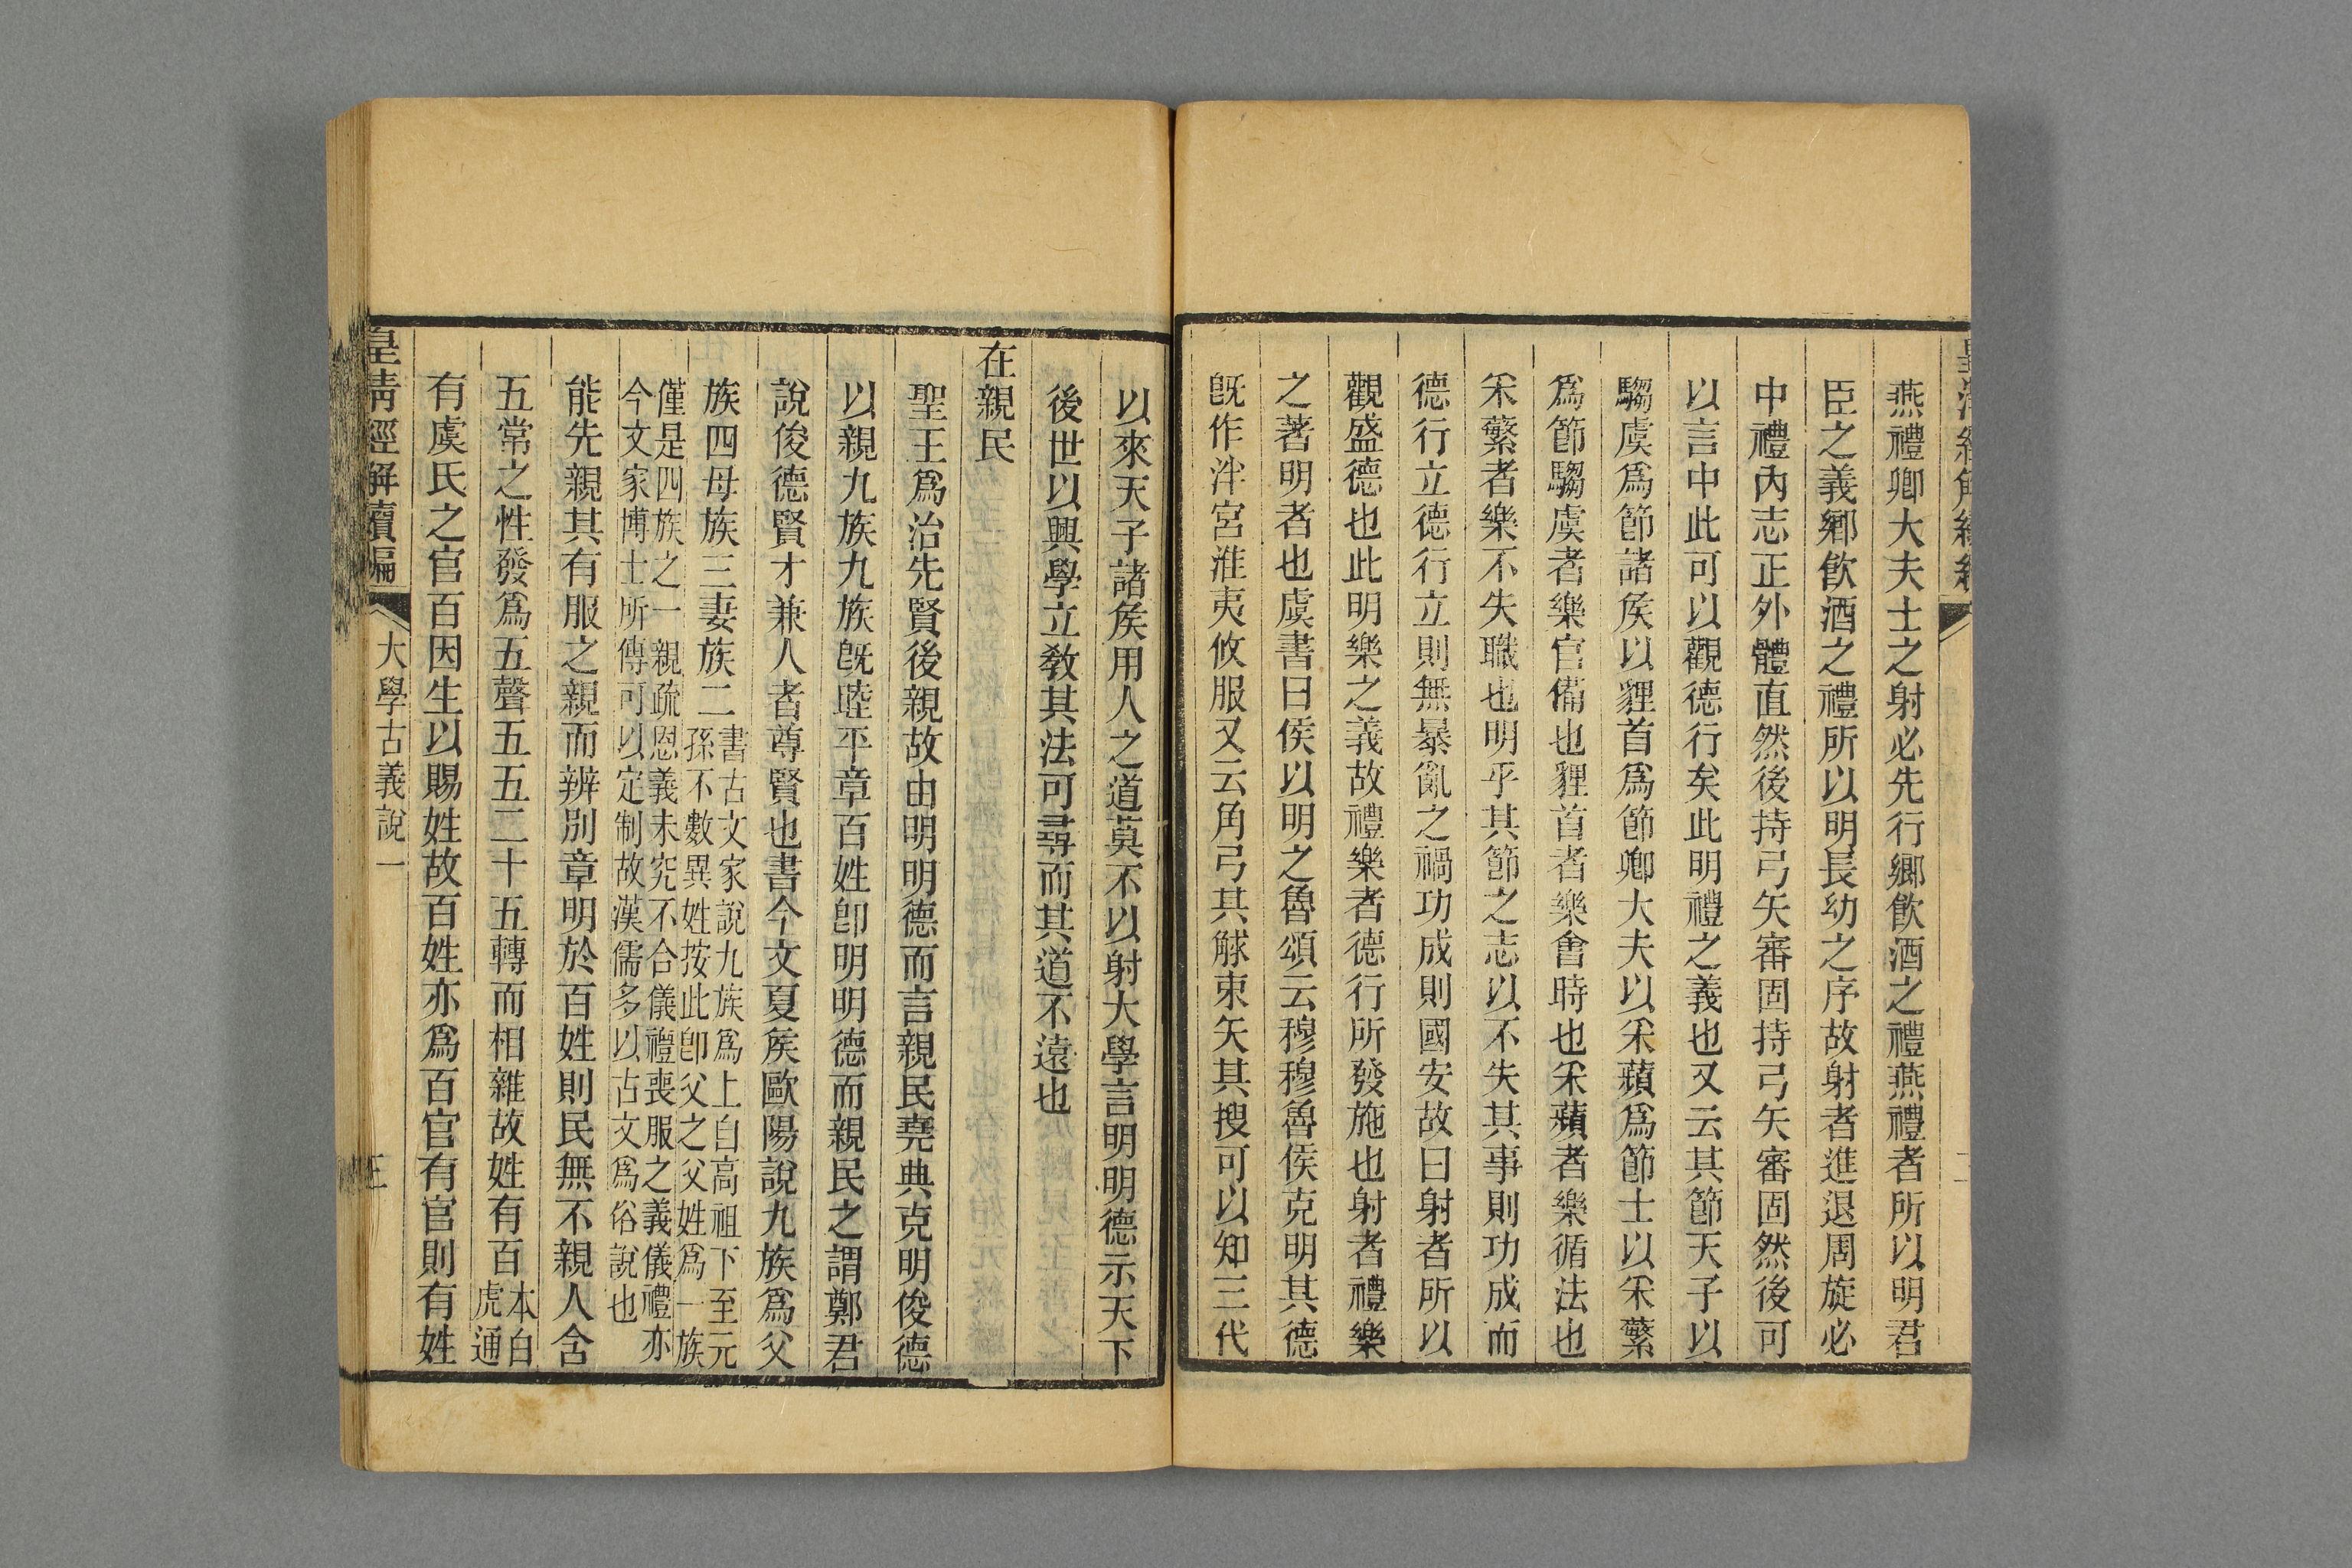 燕禮卿大夫士之射必先行鄉飮酒之禮燕禮者所以明君
臣之義鄉飮酒之禮所以明長幼之序故射者進退周旋必
中禮內志正外體直然後持弓矢審固持弓矢審固然後可
以言中此可以觀德行矣此明禮之義也又云其節天子以
騶虞爲節諸矦以貍首爲節卿大夫以采蘋爲節士以采蘩
爲節騶虞者樂官備也貍首者樂會時也采蘋者樂循法也
采蘩者樂不失職也明乎其節之志以不失其事則功成而
德行立德行立則無暴亂之禍功成則國安故曰射者所以
觀盛德也此明樂之義故禮樂者德行所發施也射者禮樂
之著明者也虞書曰侯以明之魯頌云穆穆魯侯克明其德
旣作泮宮淮夷攸服又云角弓其觩束矢其搜可以知三代
以來天子諸矦用人之道莫不以射大學言明明德示天下
後世以興學立敎其法可尋而其道不遠也
在親民
聖王爲治先賢後親故由明明德而言親民堯典克明俊德
以親九族九族旣睦平章百姓卽明明德而親民之謂鄭君
說俊德賢才兼人者尊賢也書今文夏矦歐陽說九族爲父
族四母族三妻族二
書古文家說九族爲上自高祖下至元
孫不數異姓按此卽父之父姓爲一族
僅是四族之一親疏恩義未究不合儀禮喪服之義儀禮亦
今文家博士所傳可以定制故漢儒多以古文爲俗說也
能先親其有服之親而辨別章明於百姓則民無不親人含
五常之性發爲五聲五五二十五轉而相雜故姓有百
本白
虎通
有虞氏之官百因生以賜姓故百姓亦爲百官有官則有姓
皇淸經解續編
大學古義說一